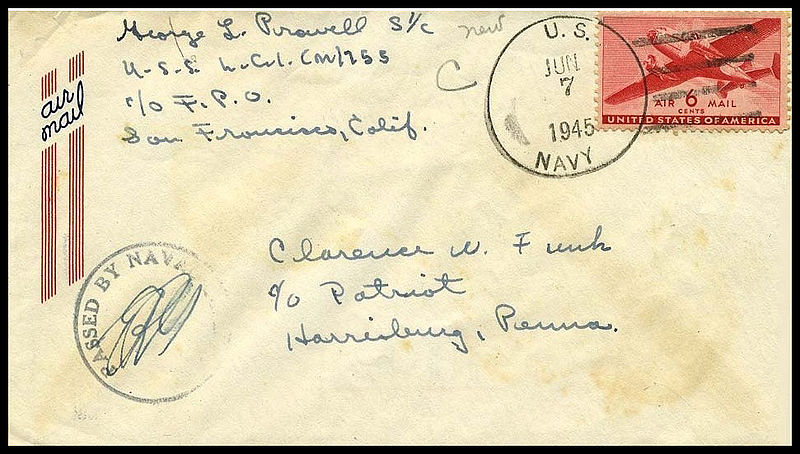 George L. Powell S/c
new
U.S.S. L.C.I. (M) 755
c/o F.P.O.
San Francisco, Calif.
C
air mail
U.S.
JUN
7
1945
NAVY
AIR 6 MAIL
CENTS
UNITED STATES OF AMERICA
PASSED BY NAVA
Clarence W. Funk
c/o Patriot
Harrisburg, Penna.